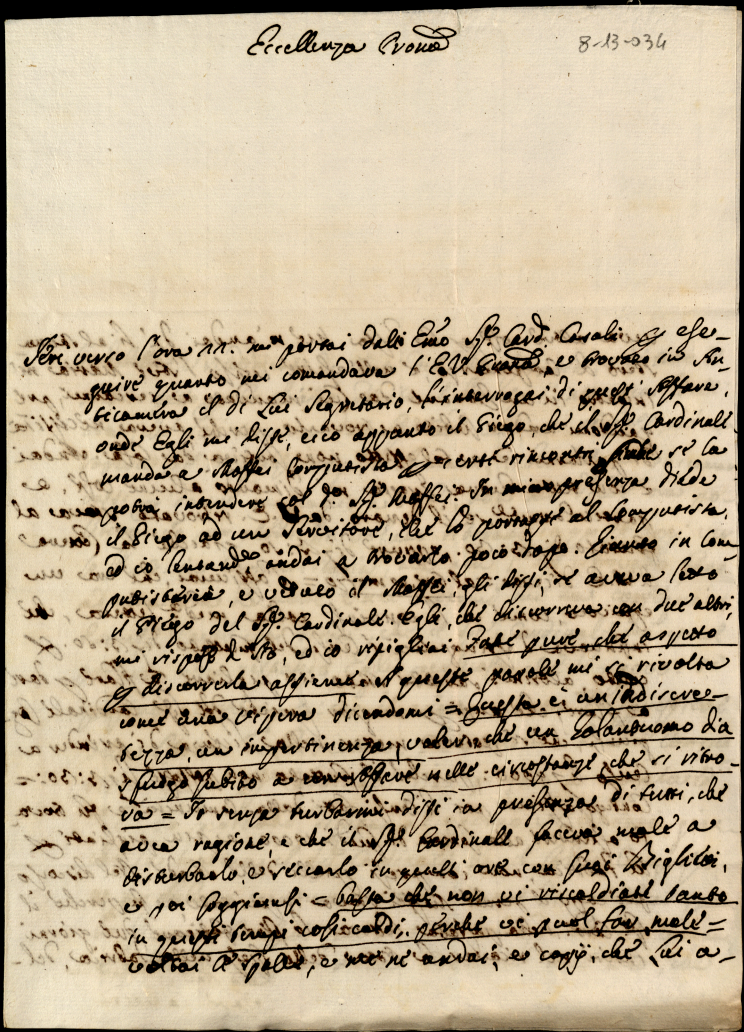 Eccellenza Prona
8-13-034
Jeri verso l'ora 22. mi portai dall' Emo Sigr. Card. Casali per ese-
guire quanto mi comandava l'E.V. Prona, e trovato in An-
ticamera il di Lui Segretario, l'interrogai di quest' Affare,
onde Egli mi disse, ecco appunto il Piego, che il Sigr. Cardinale
manda a Maffei Computista per certi rincontri, se la
potrà intendere col do. Sigr. Maffei. In mia presenza diede
il Piego ad un Servitore, che lo portasse al Computista,
ed io andai a trovarlo poco dopo. Giunto in Com-
putisteria, e veduto il Maffei, gli dissi, se aveva letto
il Piego del Sigr. Cardinale. Egli, che discorreva con due altri,
mi rispose di no, ed io ripigliai Fate pure, che aspetto
per discorrerla assieme. A queste parole mi si rivolta
come una vipera dicendomi = Questa è un' indiscre-
tezza, un' impertinenza, volere che un Galantuomo dia
sfogo subito a un Affare nelle circostanze che si ritro-
va = Io senza turbarmi dissi in presenza di tutti, che
avea ragione, e che il Sigr. Cardinale faceva male a
disturbarlo, e seccarlo in quelle ore con suoi Biglietti,
e poi soggiunsi = basta che non vi riscaldiate tanto
in questi tempi così caldi, perché vi puol far male =
voltai le spalle, e me ne andai, e capij, che Lui a-